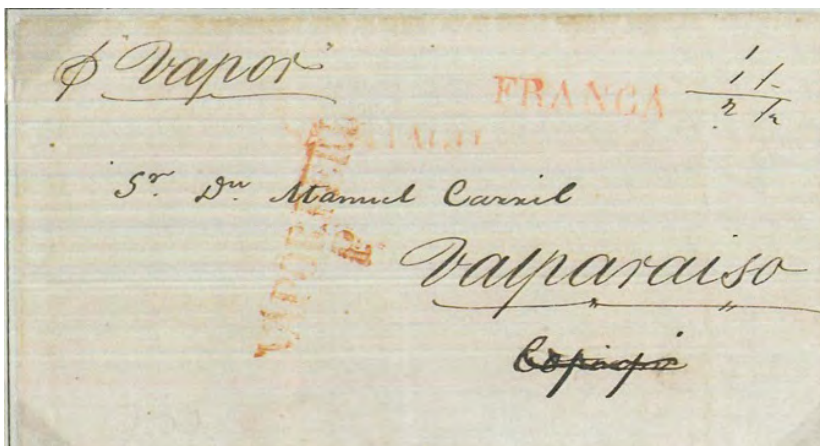 p "Vapor"
FRANCA
1 /-
2 ½
VAPOR
Sr. Dn Manuel Carril
Valparaiso
Copiapó